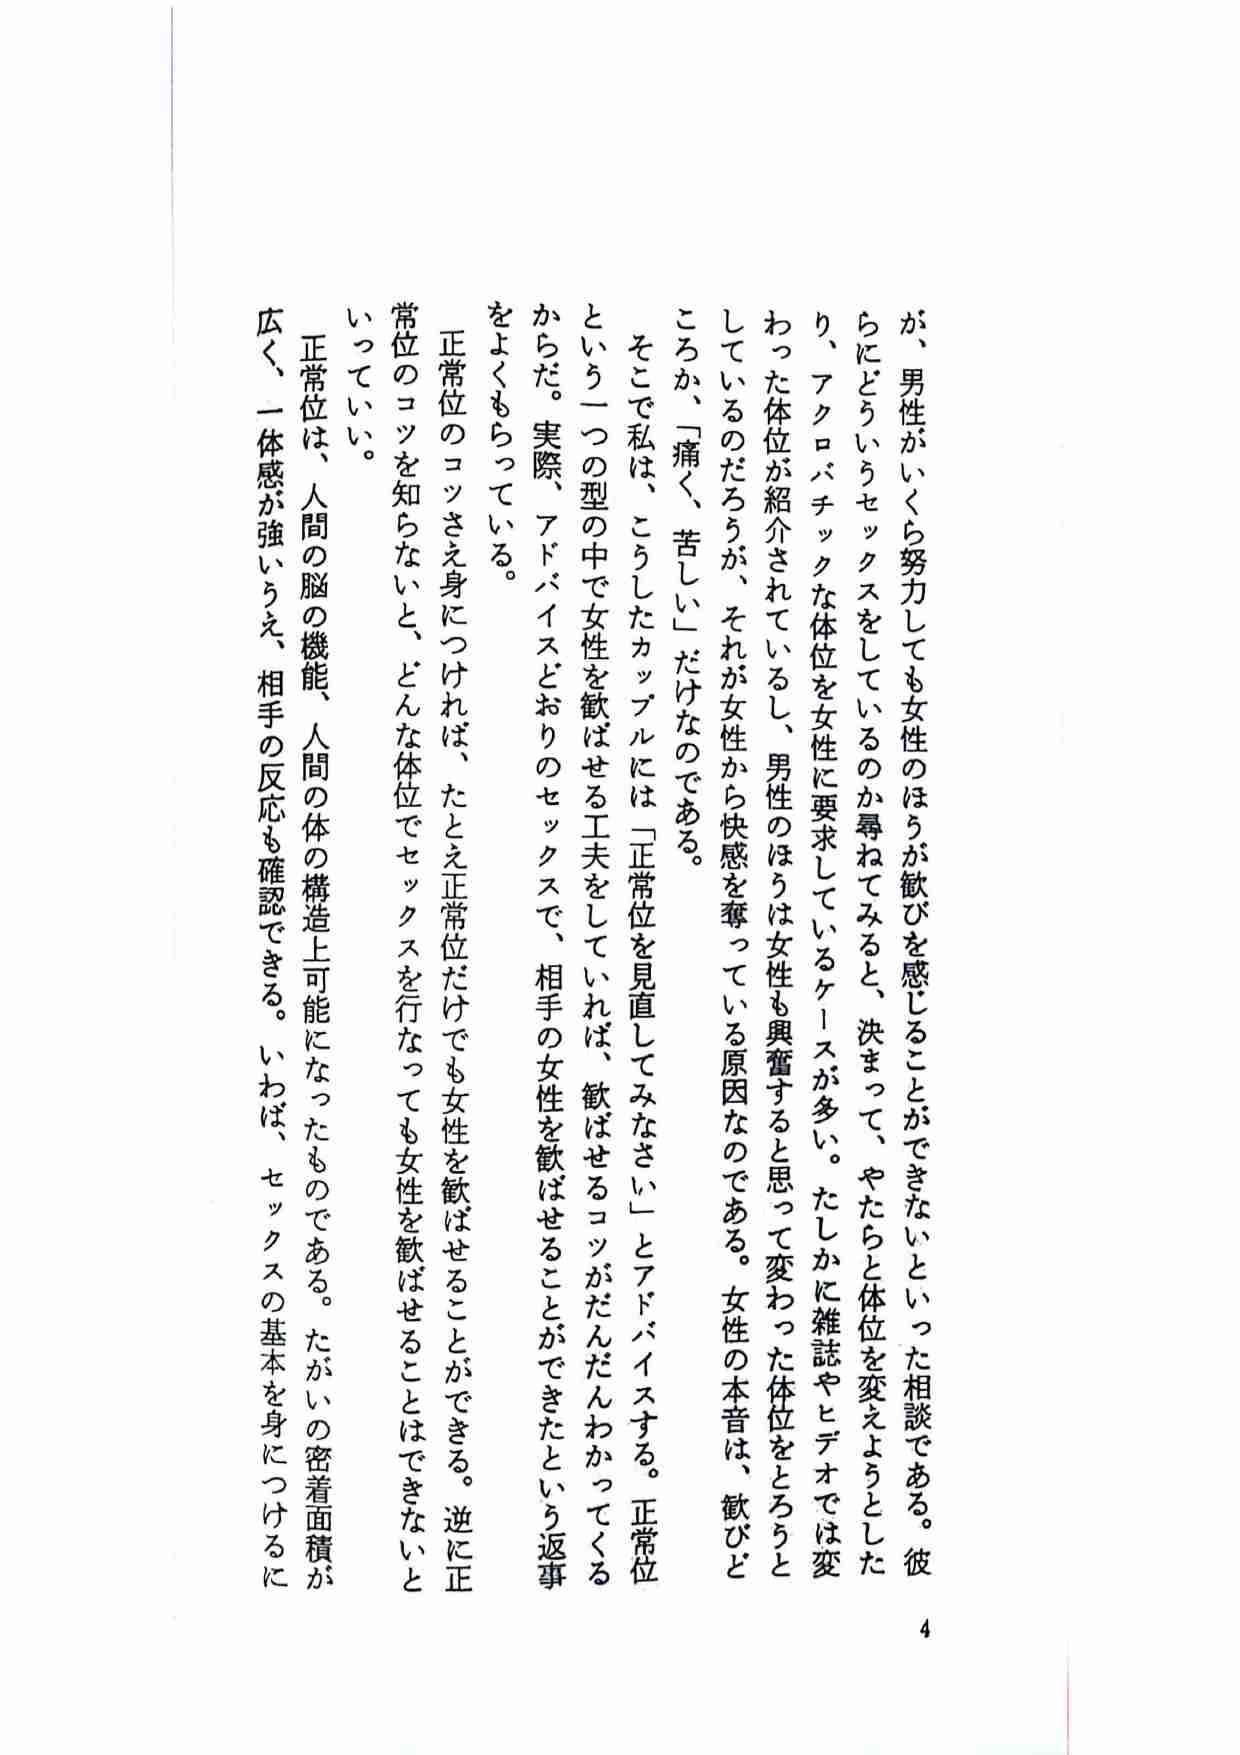 が、男性がいくら努力しても女性のほうが歓びを感じることができないといった相談である。彼
らにどういうセックスをしているのか尋ねてみると、決まって、やたらと体位を変えようとした
り、アクロバチックな体位を女性に要求しているケースが多い。たしかに雑誌やヒデオでは変
わった体位が紹介されているし、男性のほうは女性も興奮すると思って変わった体位をとろうと
しているのだろうが、それが女性から快感を奪っている原因なのである。女性の本音は、歓びど
ころか、「痛く、苦しい」だけなのである。
そこで私は、こうしたカップルには「正常位を見直してみなさい」とアドバイスする。正常位
という一つの型の中で女性を歓ばせる工夫をしていれば、歓ばせるコツがだんだんわかってくる
からだ。実際、アドバイスどおりのセックスで、相手の女性を歓ばせることができたという返事
をよくもらっている。
正常位のコツさえ身につければ、たとえ正常位だけでも女性を歓ばせることができる。逆に正
常位のコツを知らないと、どんな体位でセックスを行なっても女性を歓ばせることはできないと
いっていい。
正常位は、人間の脳の機能、人間の体の構造上可能になったものである。たがいの密着面積が
広く、一体感が強いうえ、相手の反応も確認できる。いわば、セックスの基本を身につけるに
4